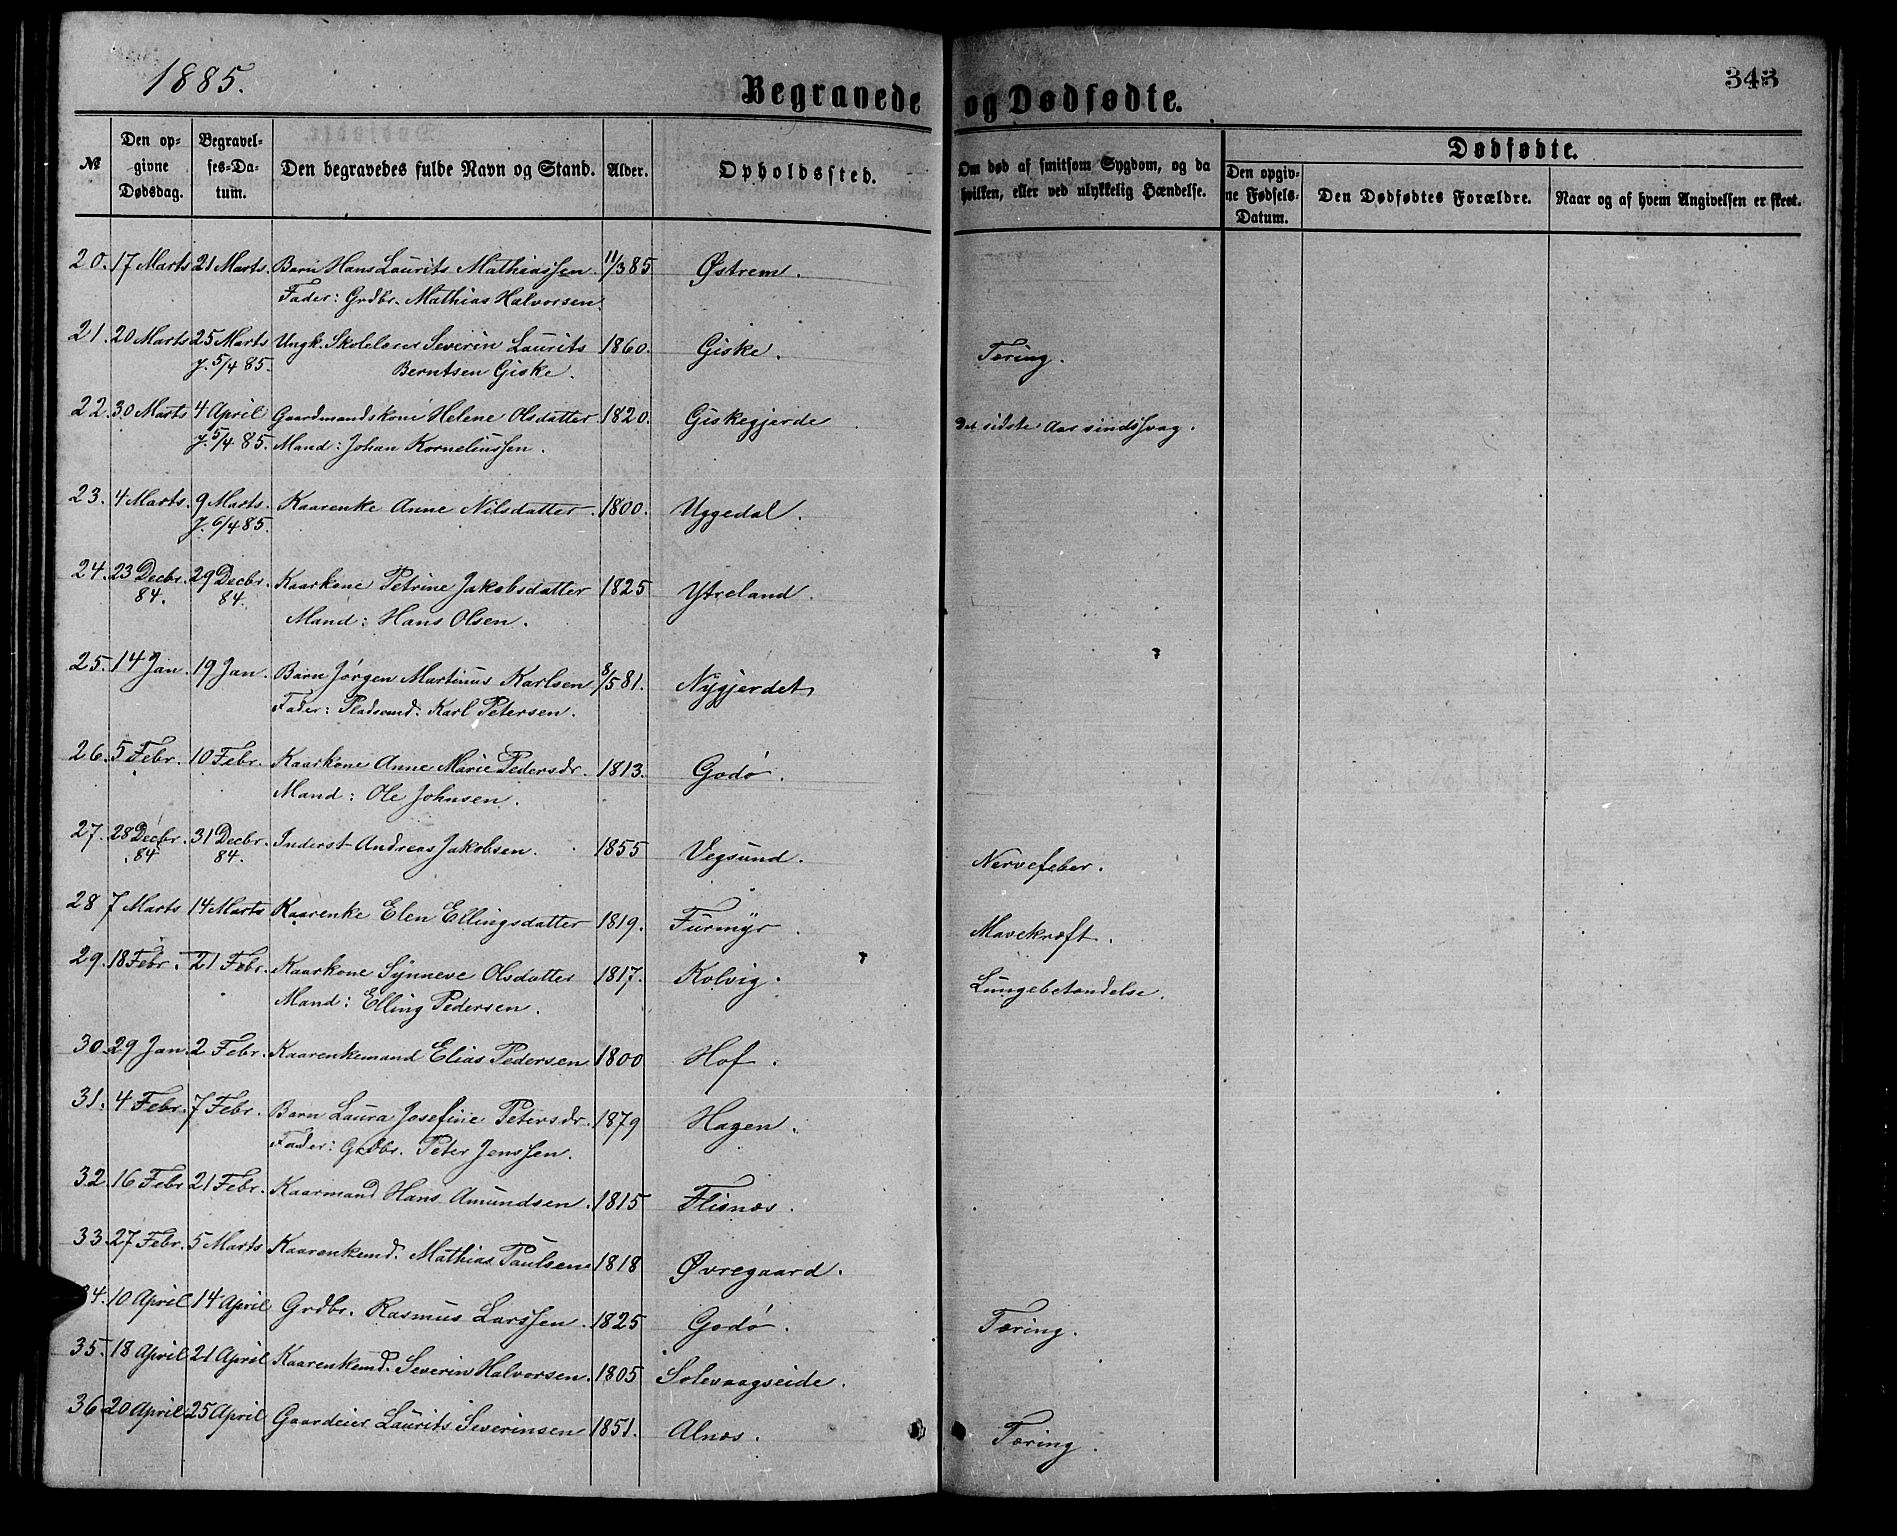 1885.
Begravede og Dødfødte.
343
№
Den opgivne Dødsdag.
Begravelses-Datum.
Den begravedes fulde Navn og Stand.
Alder.
Opholdssted.
Om død af smitsom Sygdom, og da hvilken, eller ved ulykkelig Hændelse.
Dødfødte.
Den opgivne Fødsels-Datum.
Den Dødfødtes Forældre.
Naar og af hvem Angivelsen er skeet.
20. 17 Marts 21 Marts. Barn Hans Laurits Mathiassen 11/3 85 Østrem.
Fader: Grdbr. Mathias Halvorsen.
21. 20 Marts 25 Marts Ungk. Skolelærer Severin Laurits 1860. Giske. Tæring.
J. 5/4 85. Berntsen Giske.
22. 30 Marts 4 April Gaardmandskone Helene Olsdatter 1820. Giskegjerde Det sidste Aar sindssvag.
J. 5/4 85. Mand: Johan Korneliussen.
23. 4 Marts. 9 Marts. Kaarenke Anne Nilsdatter. 1800. Uggedal.
J. 6/4 85.
24. 23 Decbr. 29 Decbr. Kaarkone Petrine Jakobsdatter 1825 Ytreland.
84. 84. Mand: Hans Olsen.
25. 14 Jan. 19 Jan. Barn Jørgen Martinus Karlsen 8/5 81. Nygjerdet
Fader: Pladsmd. Karl Petersen.
26. 5 Febr. 10 Febr. Kaarkone Anne Marie Pedersdr. 1813. Godø.
Mand: Ole Johnsen.
27. 28 Decbr. 31 Decbr. Inderst Andreas Jakobsen. 1855 Vegsund. Nervefeber.
84 84.
28 7 Marts 14 Marts Kaarenke Elen Ellingsdatter 1819. Furmyr. Mavekræft.
29. 18 Febr. 21 Febr. Kaarkone Synneve Olsdatter 1817. Kolvig. Lungebetændelse.
Mand: Elling Pedersen.
30. 29 Jan. 2 Febr. Kaarenkemand Elias Pedersen 1800 Hof.
31. 4 Febr. 7 Febr. Barn Laura Josefine Petersdr. 1879 Hagen.
Fader: Grdbr. Peter Jenssen.
32. 16 Febr 21 Febr. Kaarmand Hans Amundsen. 1815 Flisnæs.
33. 27 Febr. 5 Marts Kaarenkemd. Mathias Paulsen 1818 Øvregaard.
34. 10 April 14 April Grdbr. Rasmus Larssen. 1825 Godø. Tæring.
35. 18 April 21 April Kaarenkemd. Severin Halvorsen. 1805 Solevaagseide.
36 20 April 25 April Gaardeier Laurits Severinsen 1851. Alnæs. Tæring.